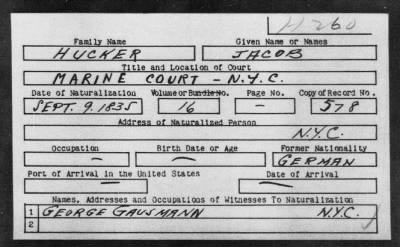 H 260
Family Name Given Name or Names
HUCKER JACOB
Title and Location of Court
MARINE COURT - N.Y.C.
Date of Naturalization Volume or Bundle No. Page No. Copy of Record No.
SEPT. 9. 1835 16 - 578
Address of Naturalized Person
N.Y.C.
Occupation Birth Date or Age Former Nationality
— — GERMAN
Port of Arrival in the United States Date of Arrival
— —
Names, Addresses and Occupations of Witnesses To Naturalization
1 GEORGE GAUSMANN N.Y.C.
2